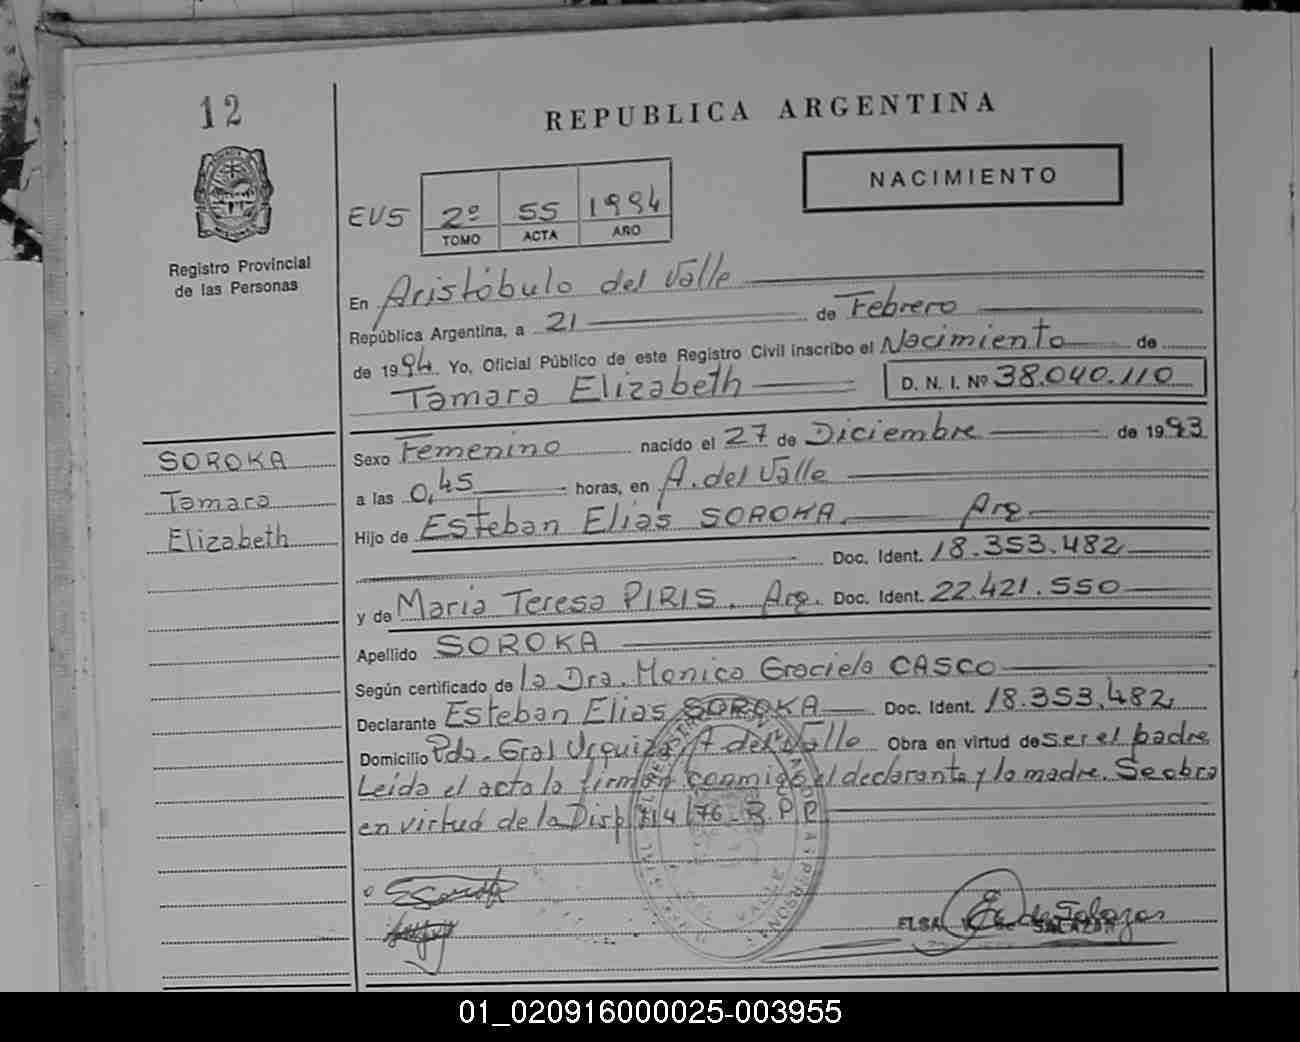 12
REPUBLICA ARGENTINA
NACIMIENTO
EV5 2º 55 1994
TOMO ACTA AÑO
Registro Provincial
de las Personas
En Aristóbulo del Valle
República Argentina, a 21 de Febrero
de 1994. Yo, Oficial Público de este Registro Civil inscribo el Nacimiento de
Tamara Elizabeth D. N. I. Nº 38.040.110
SOROKA
Tamara
Elizabeth
Sexo Femenino nacido el 27 de Diciembre de 1993
a las 0,45 horas, en A. del Valle
Hijo de Esteban Elias SOROKA. Arg.
Doc. Ident. 18.353.482
y de Maria Teresa PIRIS. Arg. Doc. Ident. 22.421.550
Apellido SOROKA
Según certificado de la Dra. Monica Graciela CASCO
Declarante Esteban Elias SOROKA Doc. Ident. 18.353.482
Domicilio Pda. Gral Urquiza A del Valle Obra en virtud de ser el padre
Leida el acta la firman conmigo el declarante y la madre. Se obra
en virtud de la Disp 114/76-R.P.P.
VALLE
ELSA
SALAZAR
01_020916000025-003955